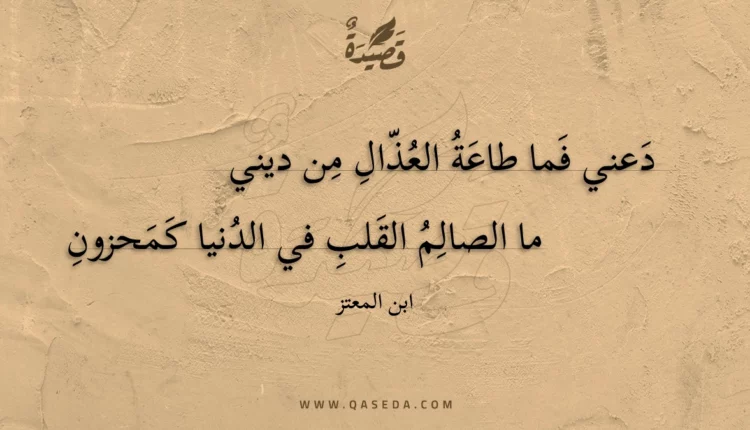 قَصِيدَةٌ
دَعني فَما طاعَةُ العُذّالِ مِن ديني
ما الصالِمُ القَلبِ في الدُنيا كَمَحزونِ
ابن المعتز
WWW.QASEDA.COM